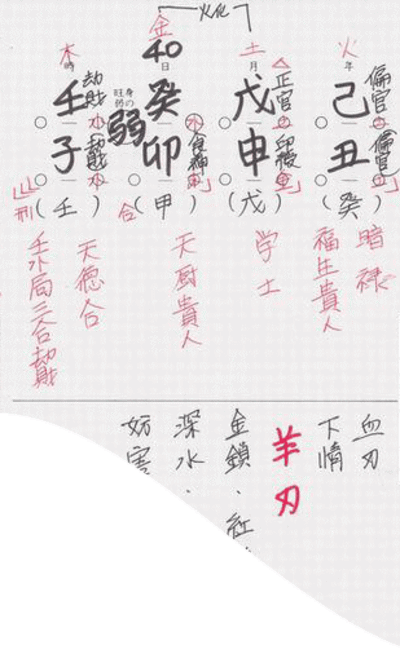 火化
火
年
偏官
己
土
偏官
丑
土
(癸)
暗禄
福生貴人
土
月
正官
戊
土
印綬
申
金
(戊)
学士
金
40
日
癸
身の旺弱
弱
水
食神
卯
合
(甲)
天厨貴人
木
時
劫財
壬
水
劫財
子
水
刑
(壬)
天徳合
壬水局三合劫財
血刃
下情
羊刃
金鎖・紅
深水・
妨害